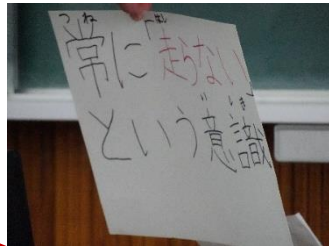 常に「走らない」
という意識